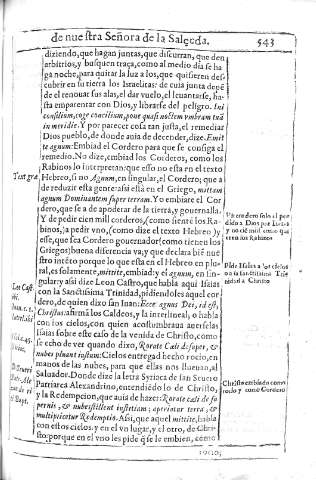 de nuestra Señora de la Salceda.
543
diziendo, que hagan juntas, que discurran, que den
arbitrios, y busquen traça, como al medio dia se ha
ga noche, para quitar la luz a los, que quisieren des
cubrir en su tierra los Israelitas: de cuià junta depẽ
de el renouar sus alas, el dar vuelo, el leuantarse, ha
sta emparentar con Dios, y librarse del peligro. Ini
consilium, coge concilium, pone quasi noctem vmbram tuã
in meridie. Y por parecer cosa tan justa, el remediar
Dios pueblo, de donde auia de decender, dize. Emit
te agnum: Embiad el Cordero para que se consiga el
remedio. No dize, embiad los Corderos, como los
Rabinos lo interpretan: que esso no està en el texto
Hebreo, si no Agnum, en singular, el Cordero, que a
de reduzir esta gente: assi està en el Griego, mittam
agnum Dominantem super terram. Yo embiare el Cor
dero, que se a de apoderar de la tierra, y gouernalla.
Y de pedir cien mil corderos, (como siente los Ra-
binos,) a pedir vno, (como dize el texto Hebreo) y
esse, que sea Cordero gouernador (como tienen los
Griegos) buena diferencia va; y que declara biẽ nue
stro intẽto porque lo que esta en el Hebreo en plu
ral, es solamente, mittite, embiad: y el agnum, en sin-
gular: y assi dize Leon Castro, que habla aqui Isaias
con la Sanctissima Trinidad, pidiendoles aquel cor
dero, de quien dixo san Iuan: Ecce agnus Dei, id est,
Christus: afirmã los Caldeos, y la interlineal, o habla
con los cielos, con quien acostumbraua auerselas
Isaias sobre este caso de la venida de Christo, como
se echo de ver quando dixo, Rorate Cæli desuper, &
nubes pluant iustum: Cielos entregad hecho rocio, en
manos de las nubes, para que ellas nos llueuan, al
Saluador. Donde dize la letra Syriaca de san Seuero
Patriarca Alexandrino, entendiẽdo lo de Christo,
y la Redempcion, que auia de hazer: Rorate cæli de su
pernis, & nubes stillent iustitiam; aperiatur terra, &
multiplicetur Redemptio. Assi, que aquel mittite, habla
con estos cielos: y en el vn lugar, y el otro, de Chri-
sto: porque en el vno les pide q̃ se le embien, como
Text. græ.
Leõ Cast
ibi.
Ioan. c. 1.
Vn cordero solo el pe
dido a Dios por Isaias
y no ciẽ mil como quie
ren los Rabinos
Pide Isaias a los cielos
o a la sanctissima Trinidad
a Christo
Christo embiado como
rocio y como Cordero